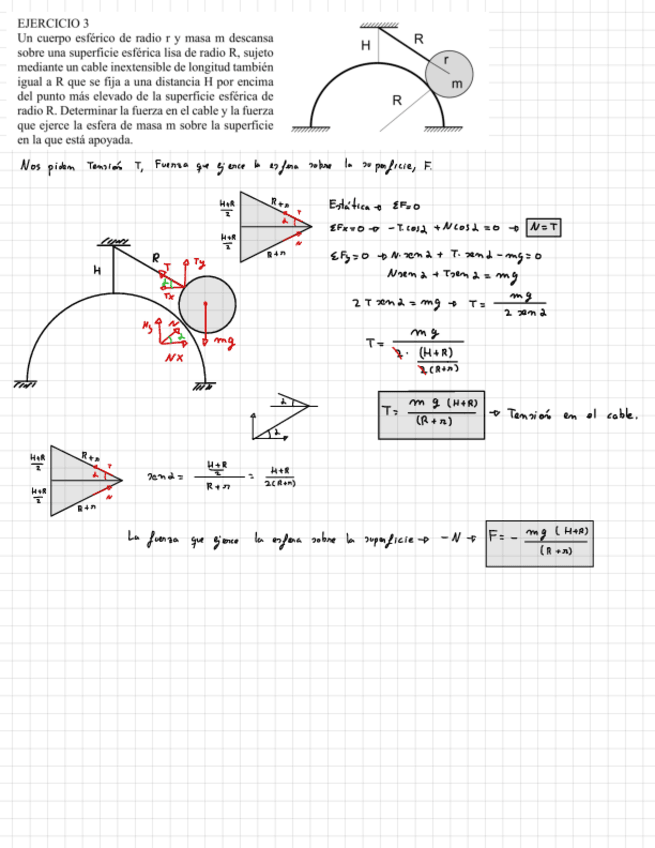 EJERCICIO 3
Un cuerpo esférico de radio r y masa m descansa
sobre una superficie esférica lisa de radio R, sujeto
mediante un cable inextensible de longitud también
igual a R que se fija a una distancia H por encima
del punto más elevado de la superficie esférica de
radio R. Determinar la fuerza en el cable y la fuerza
que ejerce la esfera de masa m sobre la superficie
en la que está apoyada.
H
R
r
m
R
Nos piden Tensión T, Fuerza que ejerce la esfera sobre la superficie, F.
H+R/2
H+R/2
R+r
T
α
N
R+r
Estática → ΣF=0
ΣFx=0 → -T.cosα + Ncosα = 0 → N=T
ΣFy=0 → N.senα + T.senα - mg=0
Nsenα + Tsenα = mg
2Tsenα = mg → T= mg / 2 senα
T= mg / 2.(H+R)/2(R+r)
T= mg(H+R) / (R+r) → Tensión en el cable.
H
R
T
Ty
Tx
Ny
N
Nx
mg
α
α
H+R/2
H+R/2
R+r
T
α
N
R+r
senα = H+R/2 / R+r = H+R / 2(R+r)
La fuerza que ejerce la esfera sobre la superficie → -N → F= - mg(H+R) / (R+r)